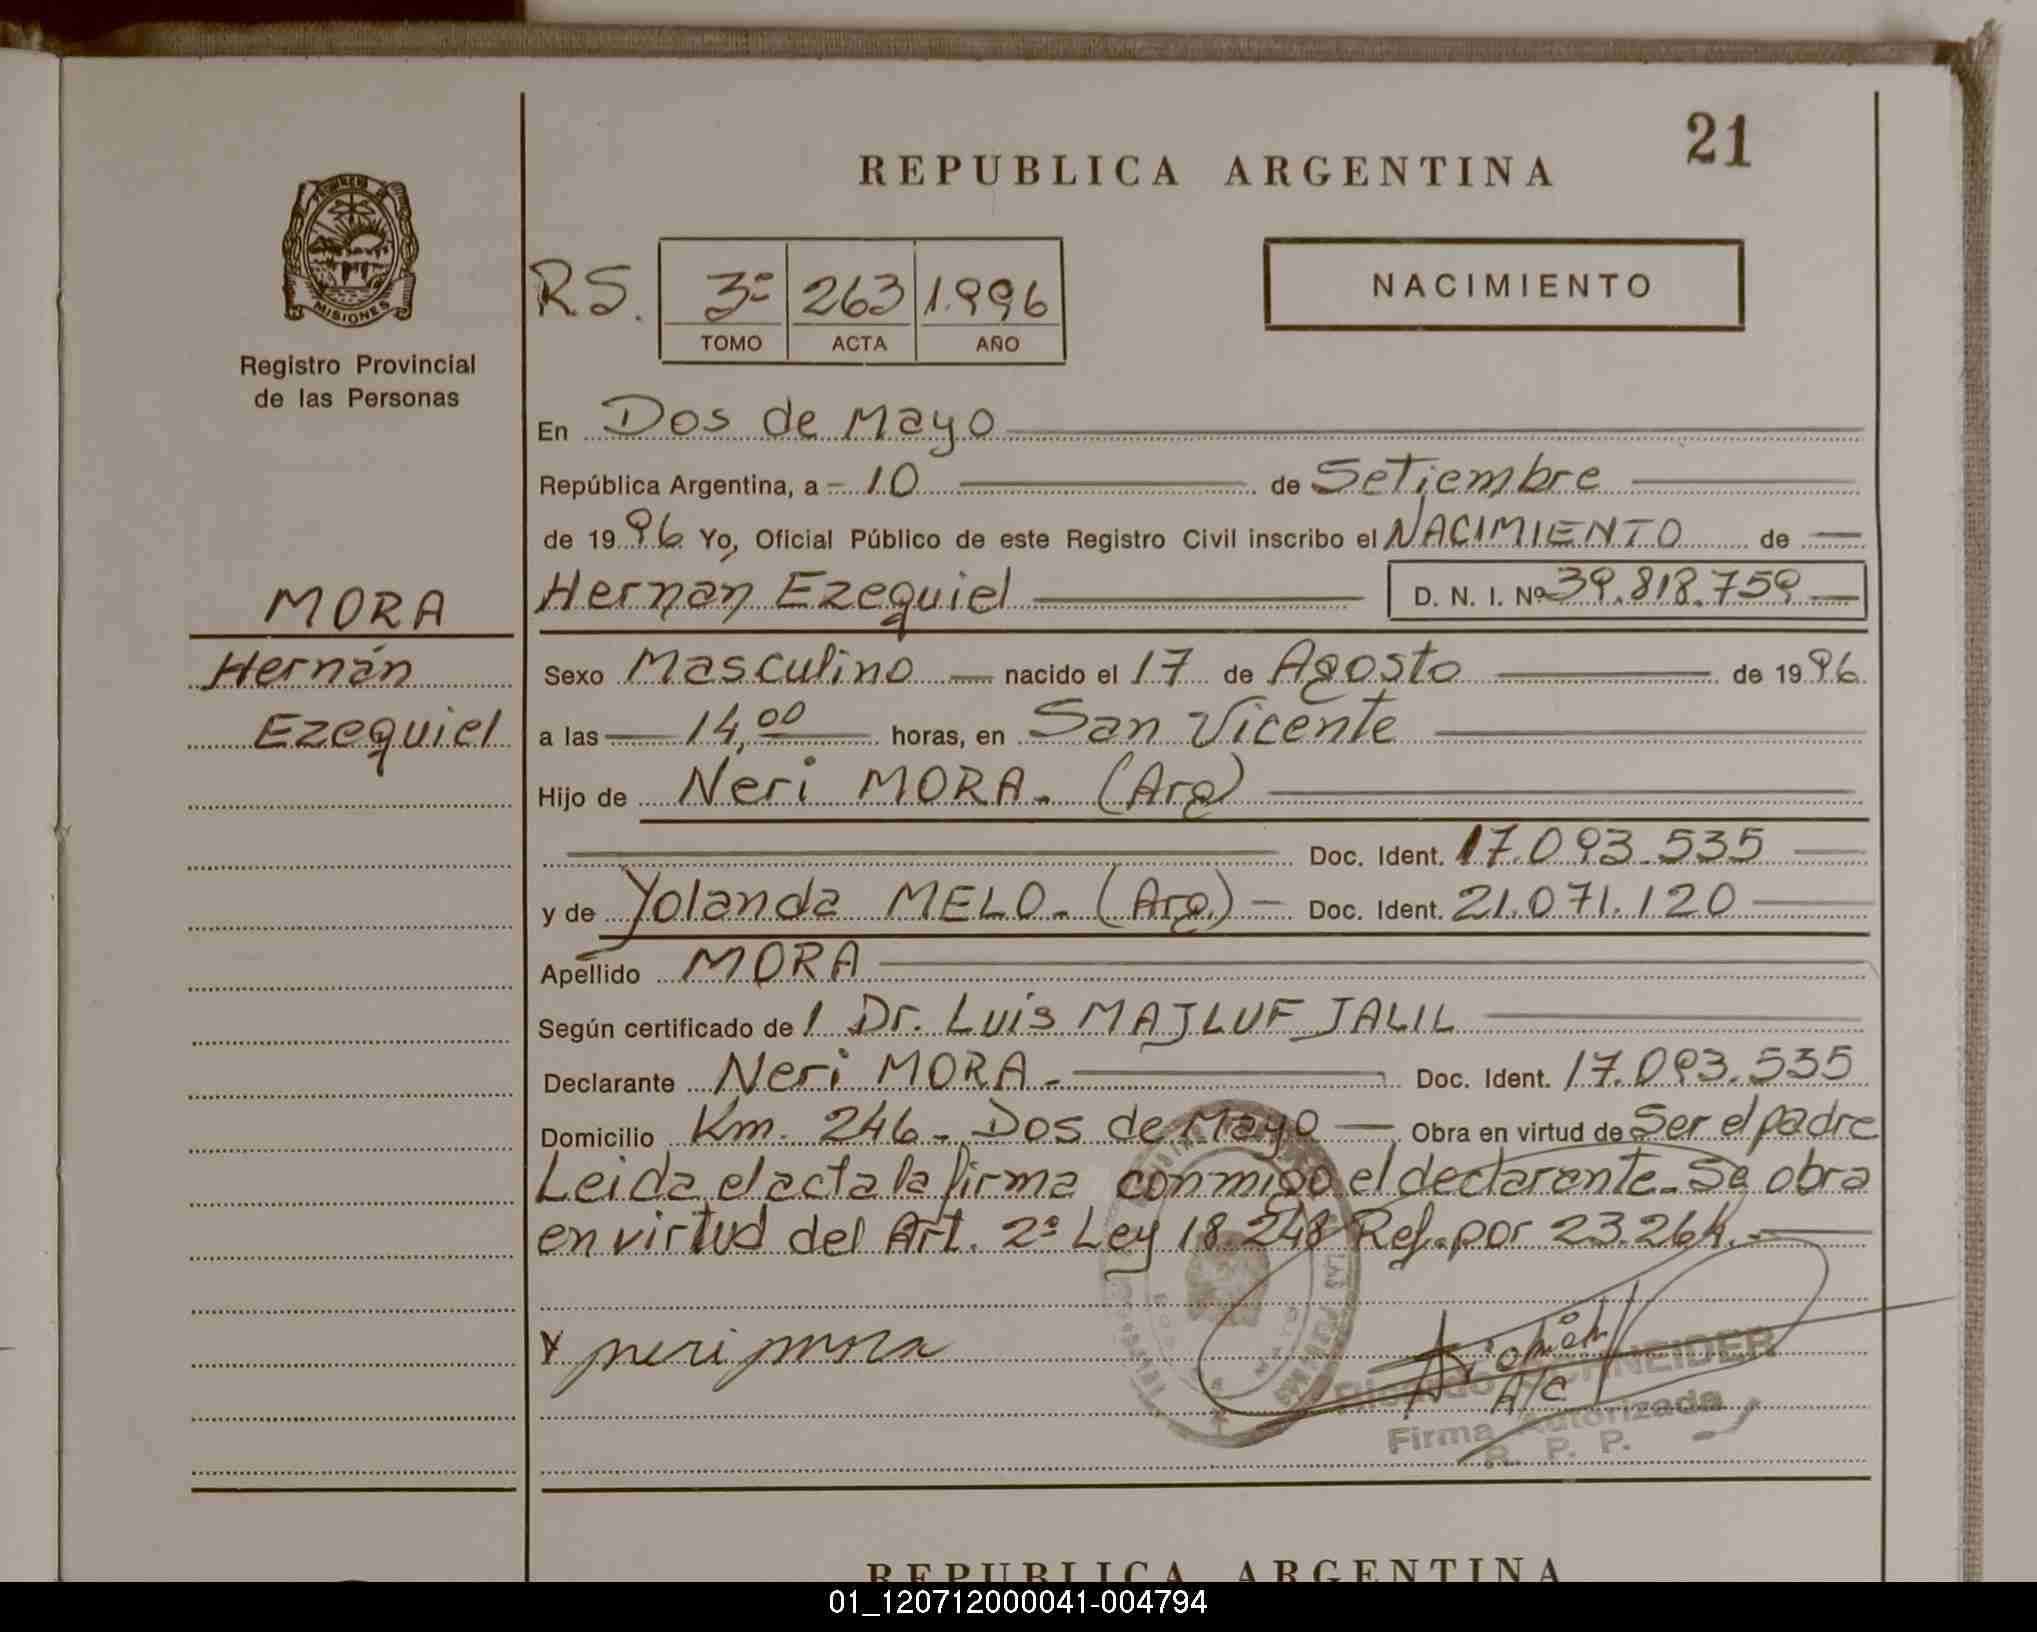 21
REPUBLICA ARGENTINA
MISIONES
Registro Provincial
de las Personas
RS. 3º 263 1.996
TOMO ACTA AÑO
NACIMIENTO
En Dos de Mayo
República Argentina, a 10 de Setiembre
de 1996 Yo, Oficial Público de este Registro Civil inscribo el NACIMIENTO de
MORA
Hernán Ezequiel D. N. I. Nº 39.818.759
Hernán
Ezequiel
Sexo Masculino nacido el 17 de Agosto de 1996
a las 14,00 horas, en San Vicente
Hijo de Neri MORA. (Arg)
Doc. Ident. 17.093.535
y de Yolanda MELO. (Arg.) Doc. Ident. 21.071.120
Apellido MORA
Según certificado de l Dr. Luis MAJLUF JALIL
Declarante Neri MORA. Doc. Ident. 17.093.535
Domicilio Km. 246. Dos de Mayo Obra en virtud de Ser el padre
Leida el acta la firma conmigo el declarante. Se obra
en virtud del Art. 2º Ley 18.248 Ref. por 23.264.
x neri mora
A/C
Ricardo SCHNEIDER
Firma Autorizada
R. P. P.
REPUBLICA ARGENTINA
01_120712000041-004794